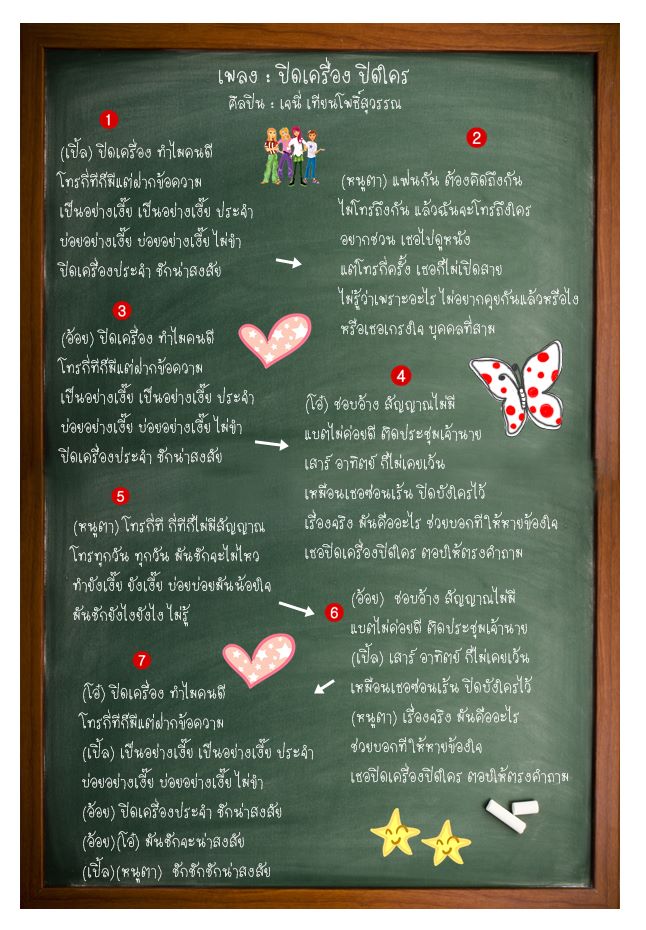 เพลง : ปิดเครื่อง ปิดใคร
ศิลปิน : เจนี่ เทียนโพธิ์สุวรรณ
1
(เปิ้ล) ปิดเครื่อง ทำไมคนดี
โทรกี่ทีก็มีแต่ฝากข้อความ
เป็นอย่างเงี้ย เป็นอย่างเงี้ย ประจำ
บ่อยอย่างเงี้ย บ่อยอย่างเงี้ย ไม่ขำ
ปิดเครื่องประจำ ชักน่าสงสัย
2
(หนูตา) แฟนกัน ต้องคิดถึงกัน
ไม่โทรถึงกัน แล้วฉันจะโทรถึงใคร
อยากชวน เธอไปดูหนัง
แต่โทรกี่ครั้ง เธอก็ไม่เปิดสาย
ไม่รู้ว่าเพราะอะไร ไม่อยากคุยกันแล้วหรือไง
หรือเธอเกรงใจ บุคคลที่สาม
3
(อ้อย) ปิดเครื่อง ทำไมคนดี
โทรกี่ทีก็มีแต่ฝากข้อความ
เป็นอย่างเงี้ย เป็นอย่างเงี้ย ประจำ
บ่อยอย่างเงี้ย บ่อยอย่างเงี้ย ไม่ขำ
ปิดเครื่องประจำ ชักน่าสงสัย
4
(โอ๋) ชอบอ้าง สัญญาณไม่มี
แบตไม่ค่อยดี ติดประชุมเจ้านาย
เสาร์ อาทิตย์ ก็ไม่เคยเว้น
เหมือนเธอซ่อนเร้น ปิดบังใครไว้
เรื่องจริง มันคืออะไร ช่วยบอกทีให้หายข้องใจ
เธอปิดเครื่องปิดใคร ตอบให้ตรงคำถาม
5
(หนูตา) โทรกี่ที กี่ทีก็ไม่มีสัญญาณ
โทรทุกวัน ทุกวัน มันชักจะไม่ไหว
ทำยังเงี้ย ยังเงี้ย บ่อยบ่อยมันน้อยใจ
มันชักยังไงยังไง ไม่รู้
6
(อ้อย) ชอบอ้าง สัญญาณไม่มี
แบตไม่ค่อยดี ติดประชุมเจ้านาย
(เปิ้ล) เสาร์ อาทิตย์ ก็ไม่เคยเว้น
เหมือนเธอซ่อนเร้น ปิดบังใครไว้
(หนูตา) เรื่องจริง มันคืออะไร
ช่วยบอกทีให้หายข้องใจ
เธอปิดเครื่องปิดใคร ตอบให้ตรงคำถาม
7
(โอ๋) ปิดเครื่อง ทำไมคนดี
โทรกี่ทีก็มีแต่ฝากข้อความ
(เปิ้ล) เป็นอย่างเงี้ย เป็นอย่างเงี้ย ประจำ
บ่อยอย่างเงี้ย บ่อยอย่างเงี้ย ไม่ขำ
(อ้อย) ปิดเครื่องประจำ ชักน่าสงสัย
(อ้อย)(โอ๋) มันชักจะน่าสงสัย
(เปิ้ล)(หนูตา) ชักชักชักน่าสงสัย